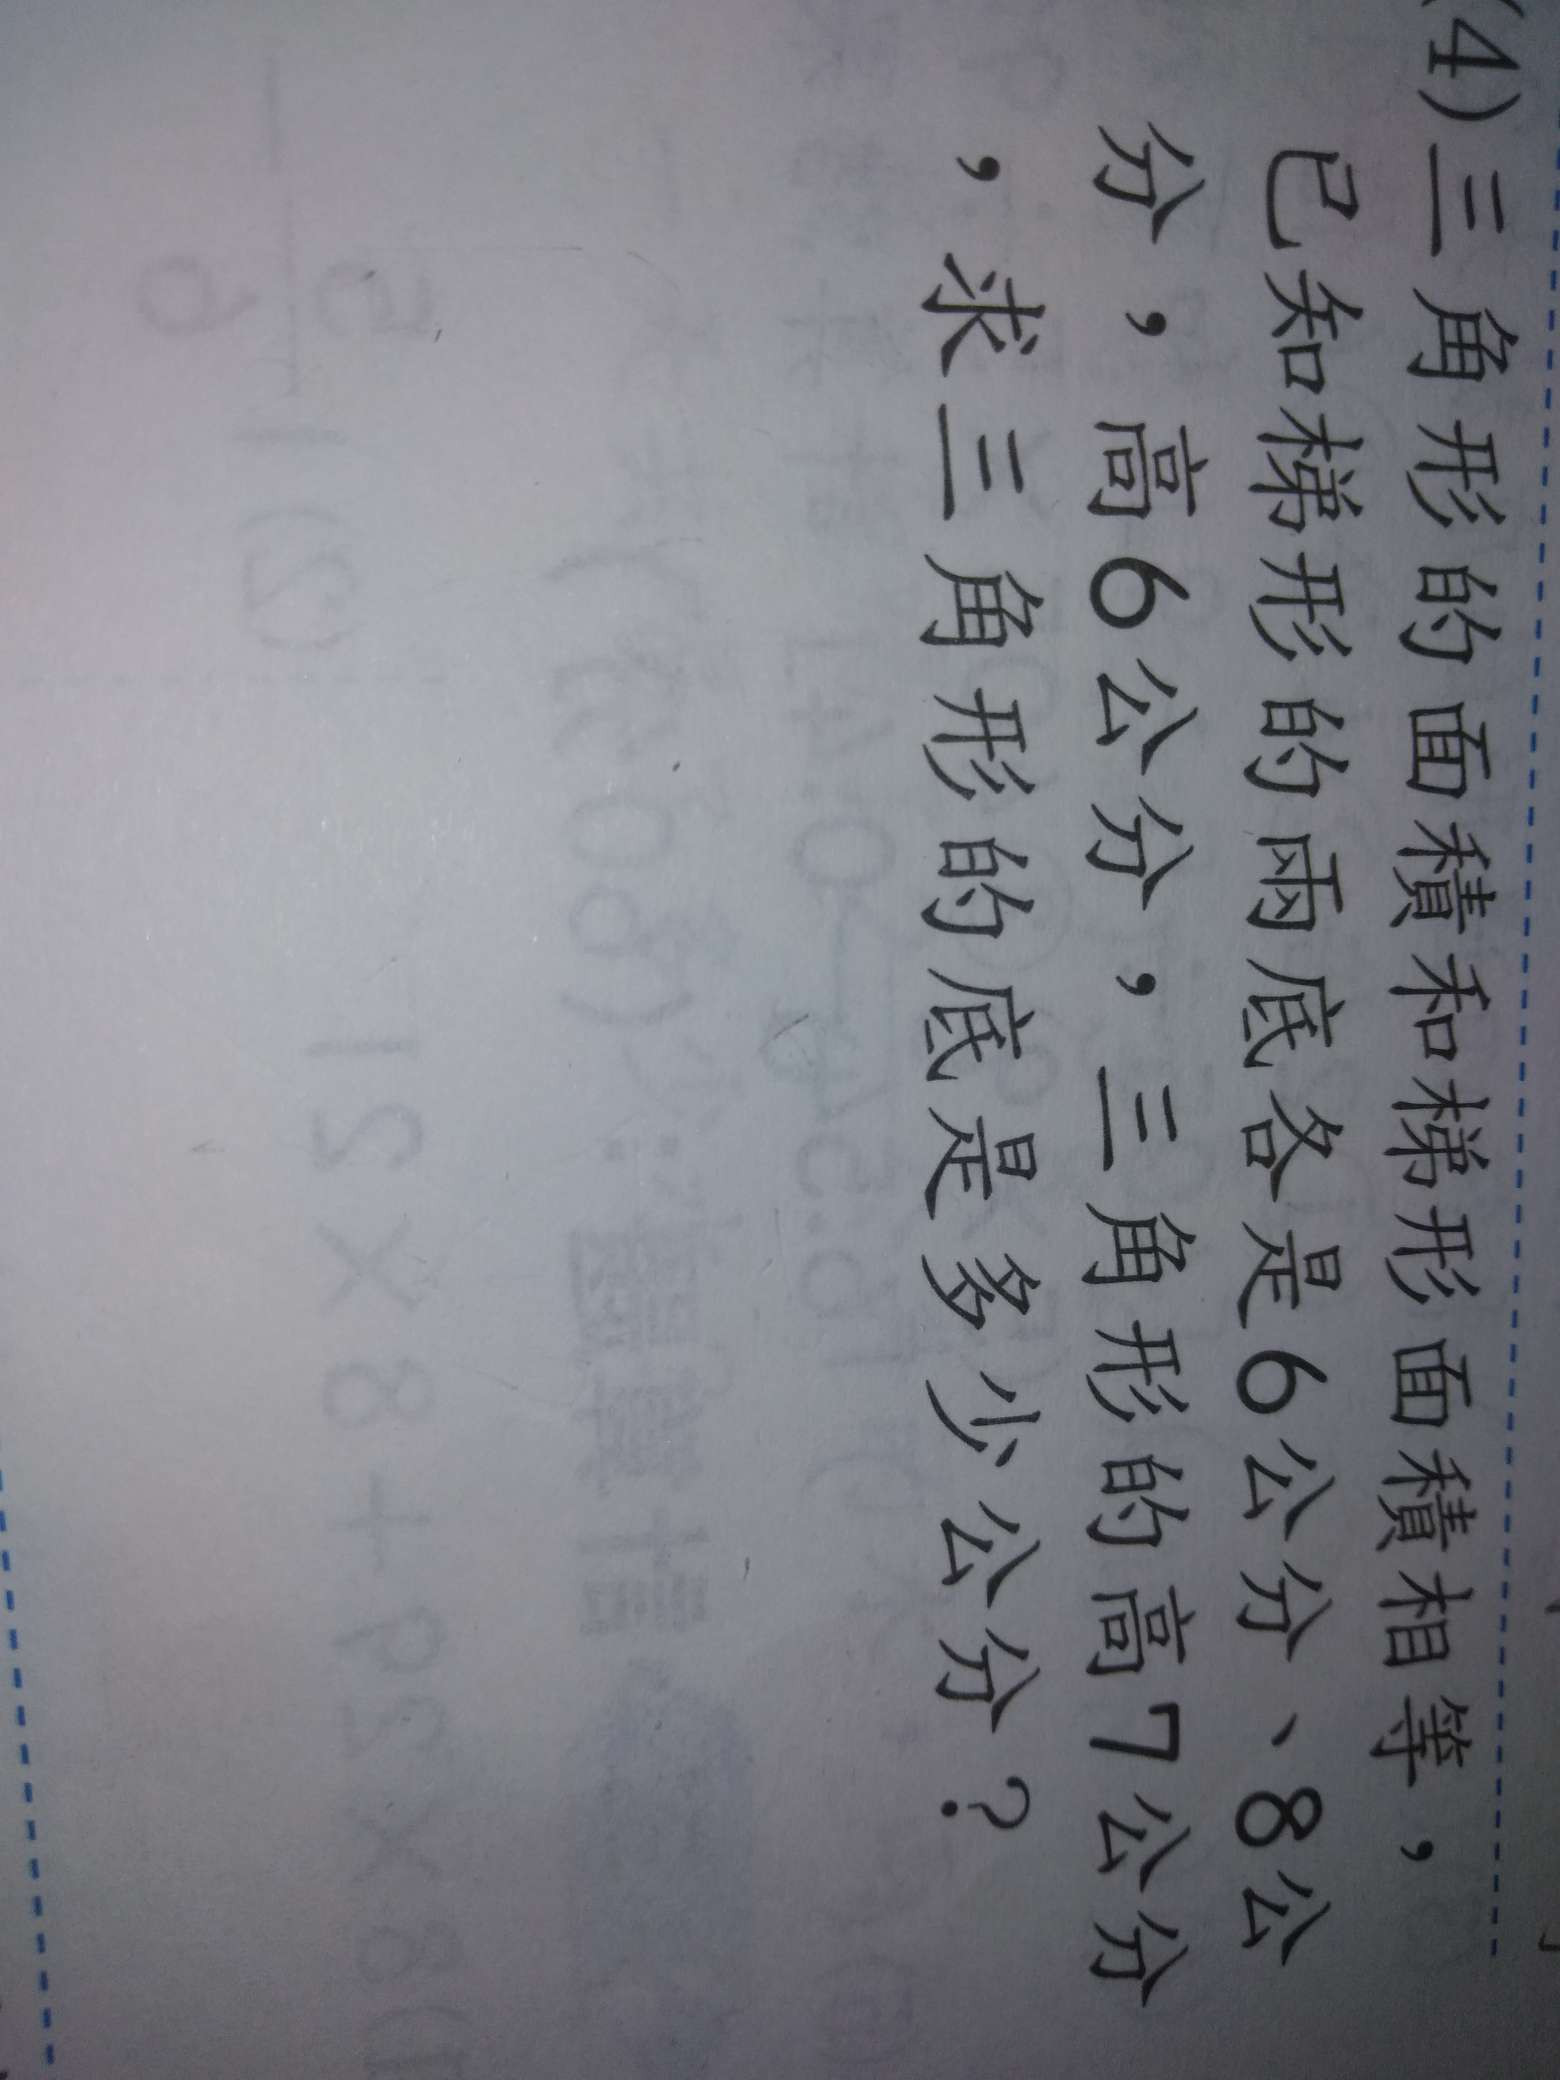 (4)三角形的面積和梯形面積相等，
已知梯形的兩底各是6公分、8公
分，高6公分，三角形的高7公分
，求三角形的底是多少公分？